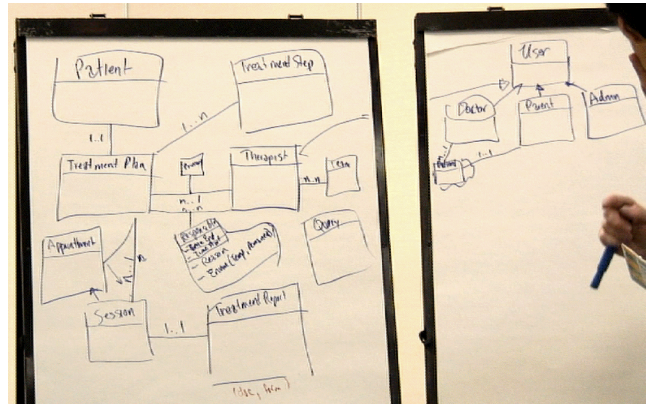 Patient
Treatment Step
1..n
1..1
Treatment Plan
Therapist
Team
n..1
n..n
n..n
Appointment
n
- Reason
Query
Session
1..1
Treatment Report
User
Doctor
Parent
Admin
1..1